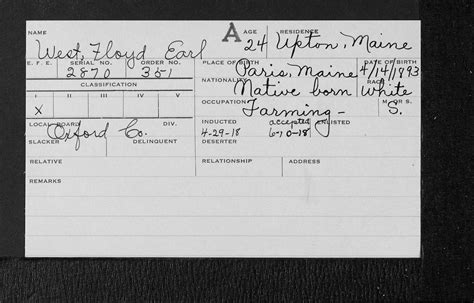 NAME A AGE RESIDENCE
West, Floyd Earl 24 Upton, Maine
E. F. E. SERIAL NO. ORDER NO. PLACE OF BIRTH DATE OF BIRTH
2870 351 Paris, Maine 4/14/1893
CLASSIFICATION NATIONALITY RACE
Native born White
I II III IV V OCCUPATION M. OR S.
X Farming - S.
LOCAL BOARD DIV. INDUCTED accepted ENLISTED
Oxford Co. 4-29-18 6-10-18
SLACKER DELINQUENT DESERTER
RELATIVE RELATIONSHIP ADDRESS
REMARKS